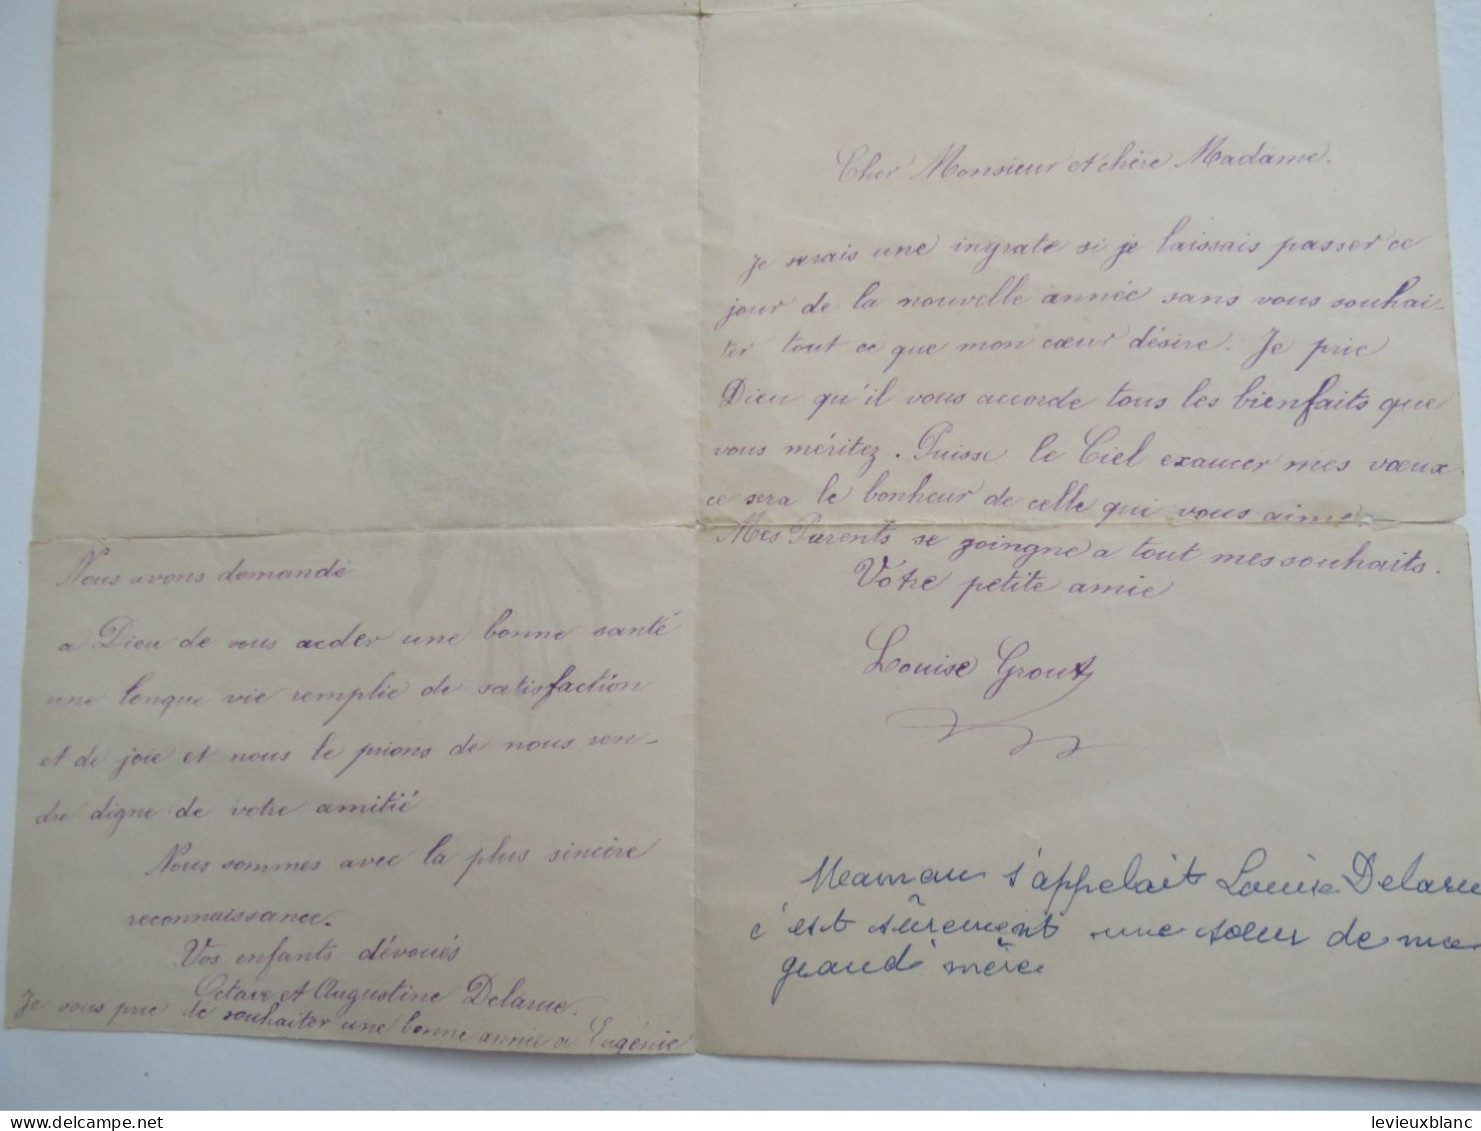 Nous avons demandé
a Dieu de vous acder une bonne santé
une longue vie remplie de satisfaction
et de joie et nous le prions de nous ren-
dre digne de votre amitié
Nous sommes avec la plus sincère
reconnaissance.
Vos enfants dévoués
Octave et Augustine Delarue.
Je vous prie de souhaiter une bonne année a Eugénie
Cher Monsieur et chère Madame.
Je serais une ingrate si je laissais passer ce
jour de la nouvelle année sans vous souhai-
ter tout ce que mon cœur désire. Je prie
Dieu qu'il vous accorde tous les bienfaits que
vous méritez. Puisse le Ciel exaucer mes vœux
ce sera le bonheur de celle qui vous aime.
Mes Parents se goingne a tout mes souhaits.
Vôtre petite amie
Louise Grout
Maman s'appelait Louise Delaru
c'est sûrement une sœur de ma
grand'mère
levieuxblanc
www.delcampe.net